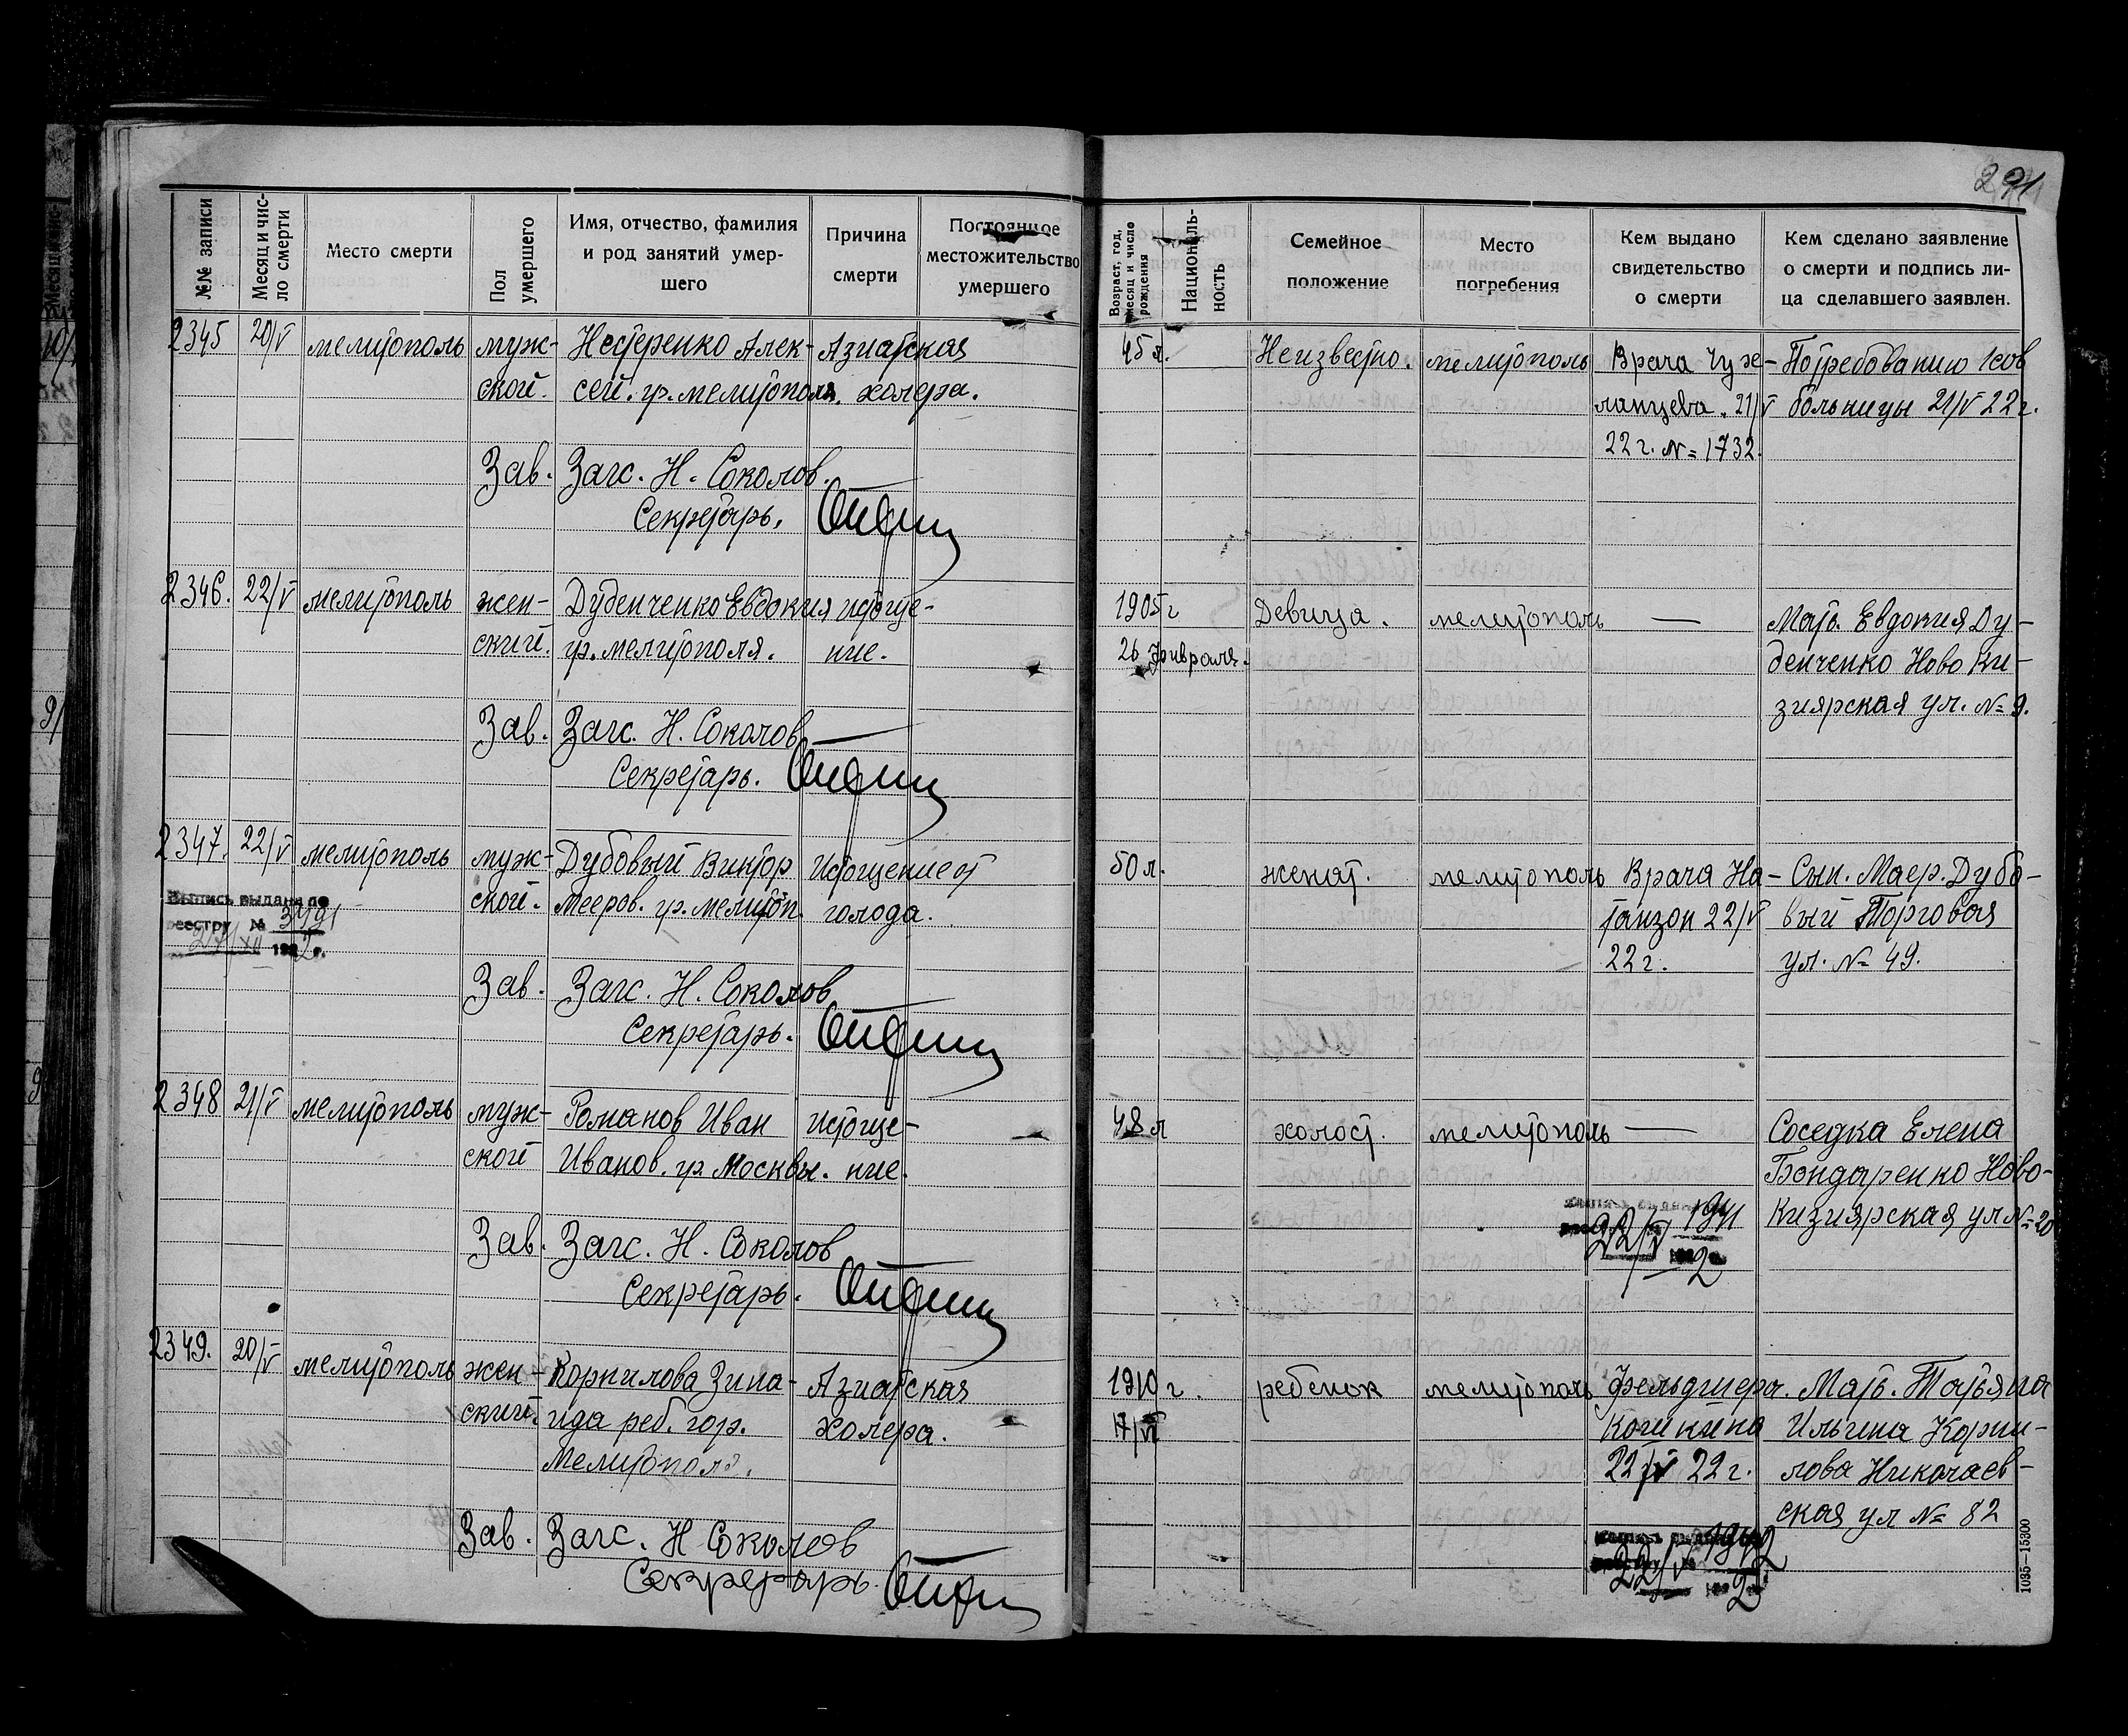 291
№№ записи
Месяц и чис-
ло смерти
Место смерти
Пол
умершего
Имя, отчество, фамилия
и род занятий умер-
шего
Причина
смерти
Постоянное
местожительство
умершего
Возраст, год,
месяц и число
рождения
Националь-
ность
Семейное
положение
Место
погребения
Кем выдано
свидетельство
о смерти
Кем сделано заявление
о смерти и подпись ли-
ца сделавшего заявлен.
2345 20/V мелитополь муж- Нестеренко Алек- Азиатская 45 л. Неизвестно. мелитополь Врача Чуж- По требованию 1 сов
ской. сей. гр. мелитополя. холера. ланцева. 21/V больницы 21/V 22 г.
22 г. № 1732.
Зав. Загс. Н. Соколов.
Секретарь.
2346. 22/V мелитополь жен- Дубенченко Евдокия истоще- 1905 г Девица. мелитополь — Мать. Евдокия Ду-
ский. гр. мелитополя. ние. 26 февраля. бенченко Ново Ки-
зиярская ул. № 9.
Зав. Загс. Н. Соколов
Секретарь.
2347. 22/V мелитополь муж- Дубовый Виктор Истощение от 50 л. женат. мелитополь Врача На- Сын. Маер. Дубо-
ской. Мееров. гр. мелитоп. голода. танзон 22/V вый Торговая
22 г. ул. № 49.
Выпись выдана по
реестру № 3491
27/XII 192 г.
Зав. Загс. Н. Соколов
Секретарь.
2348 21/V мелитополь муж- Романов Иван Истоще- 48 л холост. мелитополь — Соседка Елена
ской Иванов. гр. Москвы. ние. Бондаренко Ново-
Кизиярская ул № 20
1941
22/V 2
Зав. Загс. Н. Соколов
Секретарь.
2349. 20/V мелитополь жен- Корнилова Зина- Азиатская 1910 г. ребенок мелитополь Фельдшера. Мать. Татьяна
ский. ида реб. гор. Холера. Кошкина Ильина Корни-
Мелитополя. 22/V 22 г. лова Николаев-
ская ул № 82
1942
22/V 2
Зав. Загс. Н Соколов
Секретарь.
1035—15300